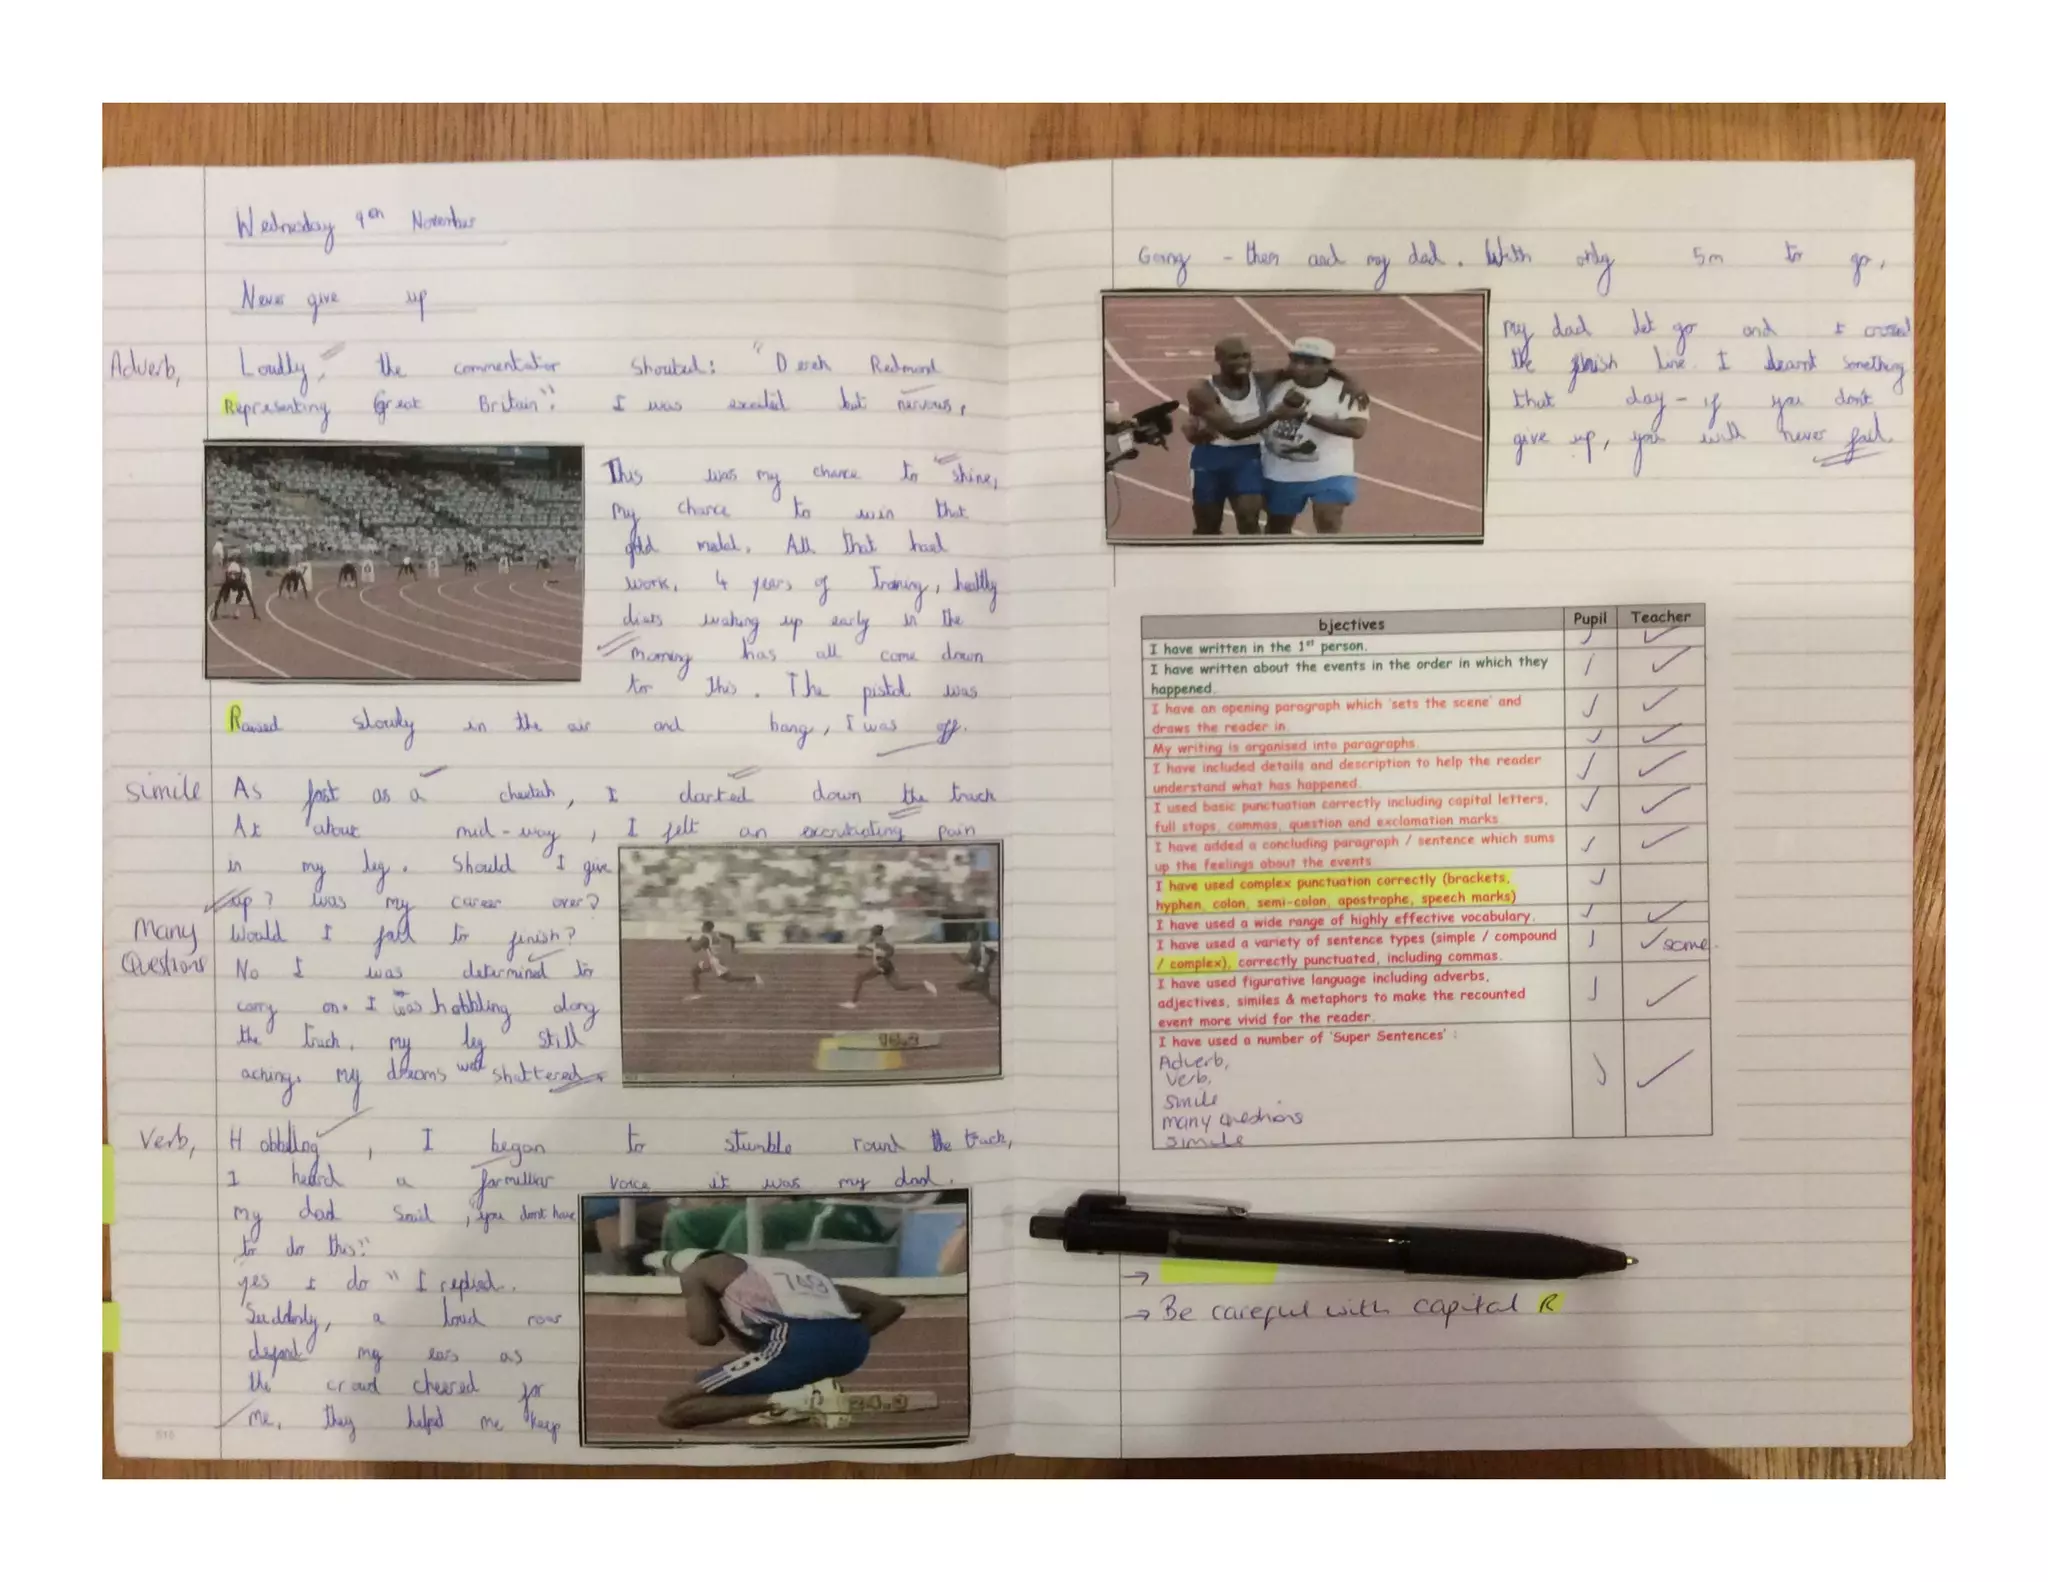 Wednesday 9th November
Never give up
Adverb,
Loudly, the commentator shouted: "Derek Redmond
Representing Great Britain". I was excited but nervous,
This was my chance to shine,
my chance to win that
gold medal. All that hard
work, 4 years of Training, healthy
diets waking up early in the
morning has all come down
to this. The pistol was
Raised slowly in the air and bang, I was off.
Simile
As fast as a cheetah, I darted down the track
At about mid-way, I felt an pain
in my leg. Should I give
up? was my career over?
Many
Questions
Would I fail to finish?
No I was determined to
carry on. I was hobbling along
the track, my leg still
aching. my dreams was shattered.
Verb,
Hobbling, I began to stumble round the track,
I heard a voice it was my dad.
my dad said, "you dont have
to do this."
yes I do" I replied.
Suddenly, a loud roar
my ears as
the crowd cheered for
me. they helped me keep
Going - them and my dad. With only 5m to go,
my dad let go and I crossed
the finish line. I learnt something
that day - if you don't
give up, you will never fail.
bjectives Pupil Teacher
I have written in the 1st person.
I have written about the events in the order in which they
happened.
I have an opening paragraph which 'sets the scene' and
draws the reader in.
My writing is organised into paragraphs.
I have included details and description to help the reader
understand what has happened.
I used basic punctuation correctly including capital letters,
full stops, commas, question and exclamation marks
I have added a concluding paragraph / sentence which sums
up the feelings about the events.
I have used complex punctuation correctly (brackets,
hyphen, colon, semi-colon, apostrophe, speech marks)
I have used a wide range of highly effective vocabulary.
I have used a variety of sentence types (simple / compound
/ complex), correctly punctuated, including commas.
some.
I have used figurative language including adverbs,
adjectives, similes & metaphors to make the recounted
event more vivid for the reader.
I have used a number of 'Super Sentences' :
Adverb,
Verb,
simile
many questions
simile
→
→ Be careful with capital R